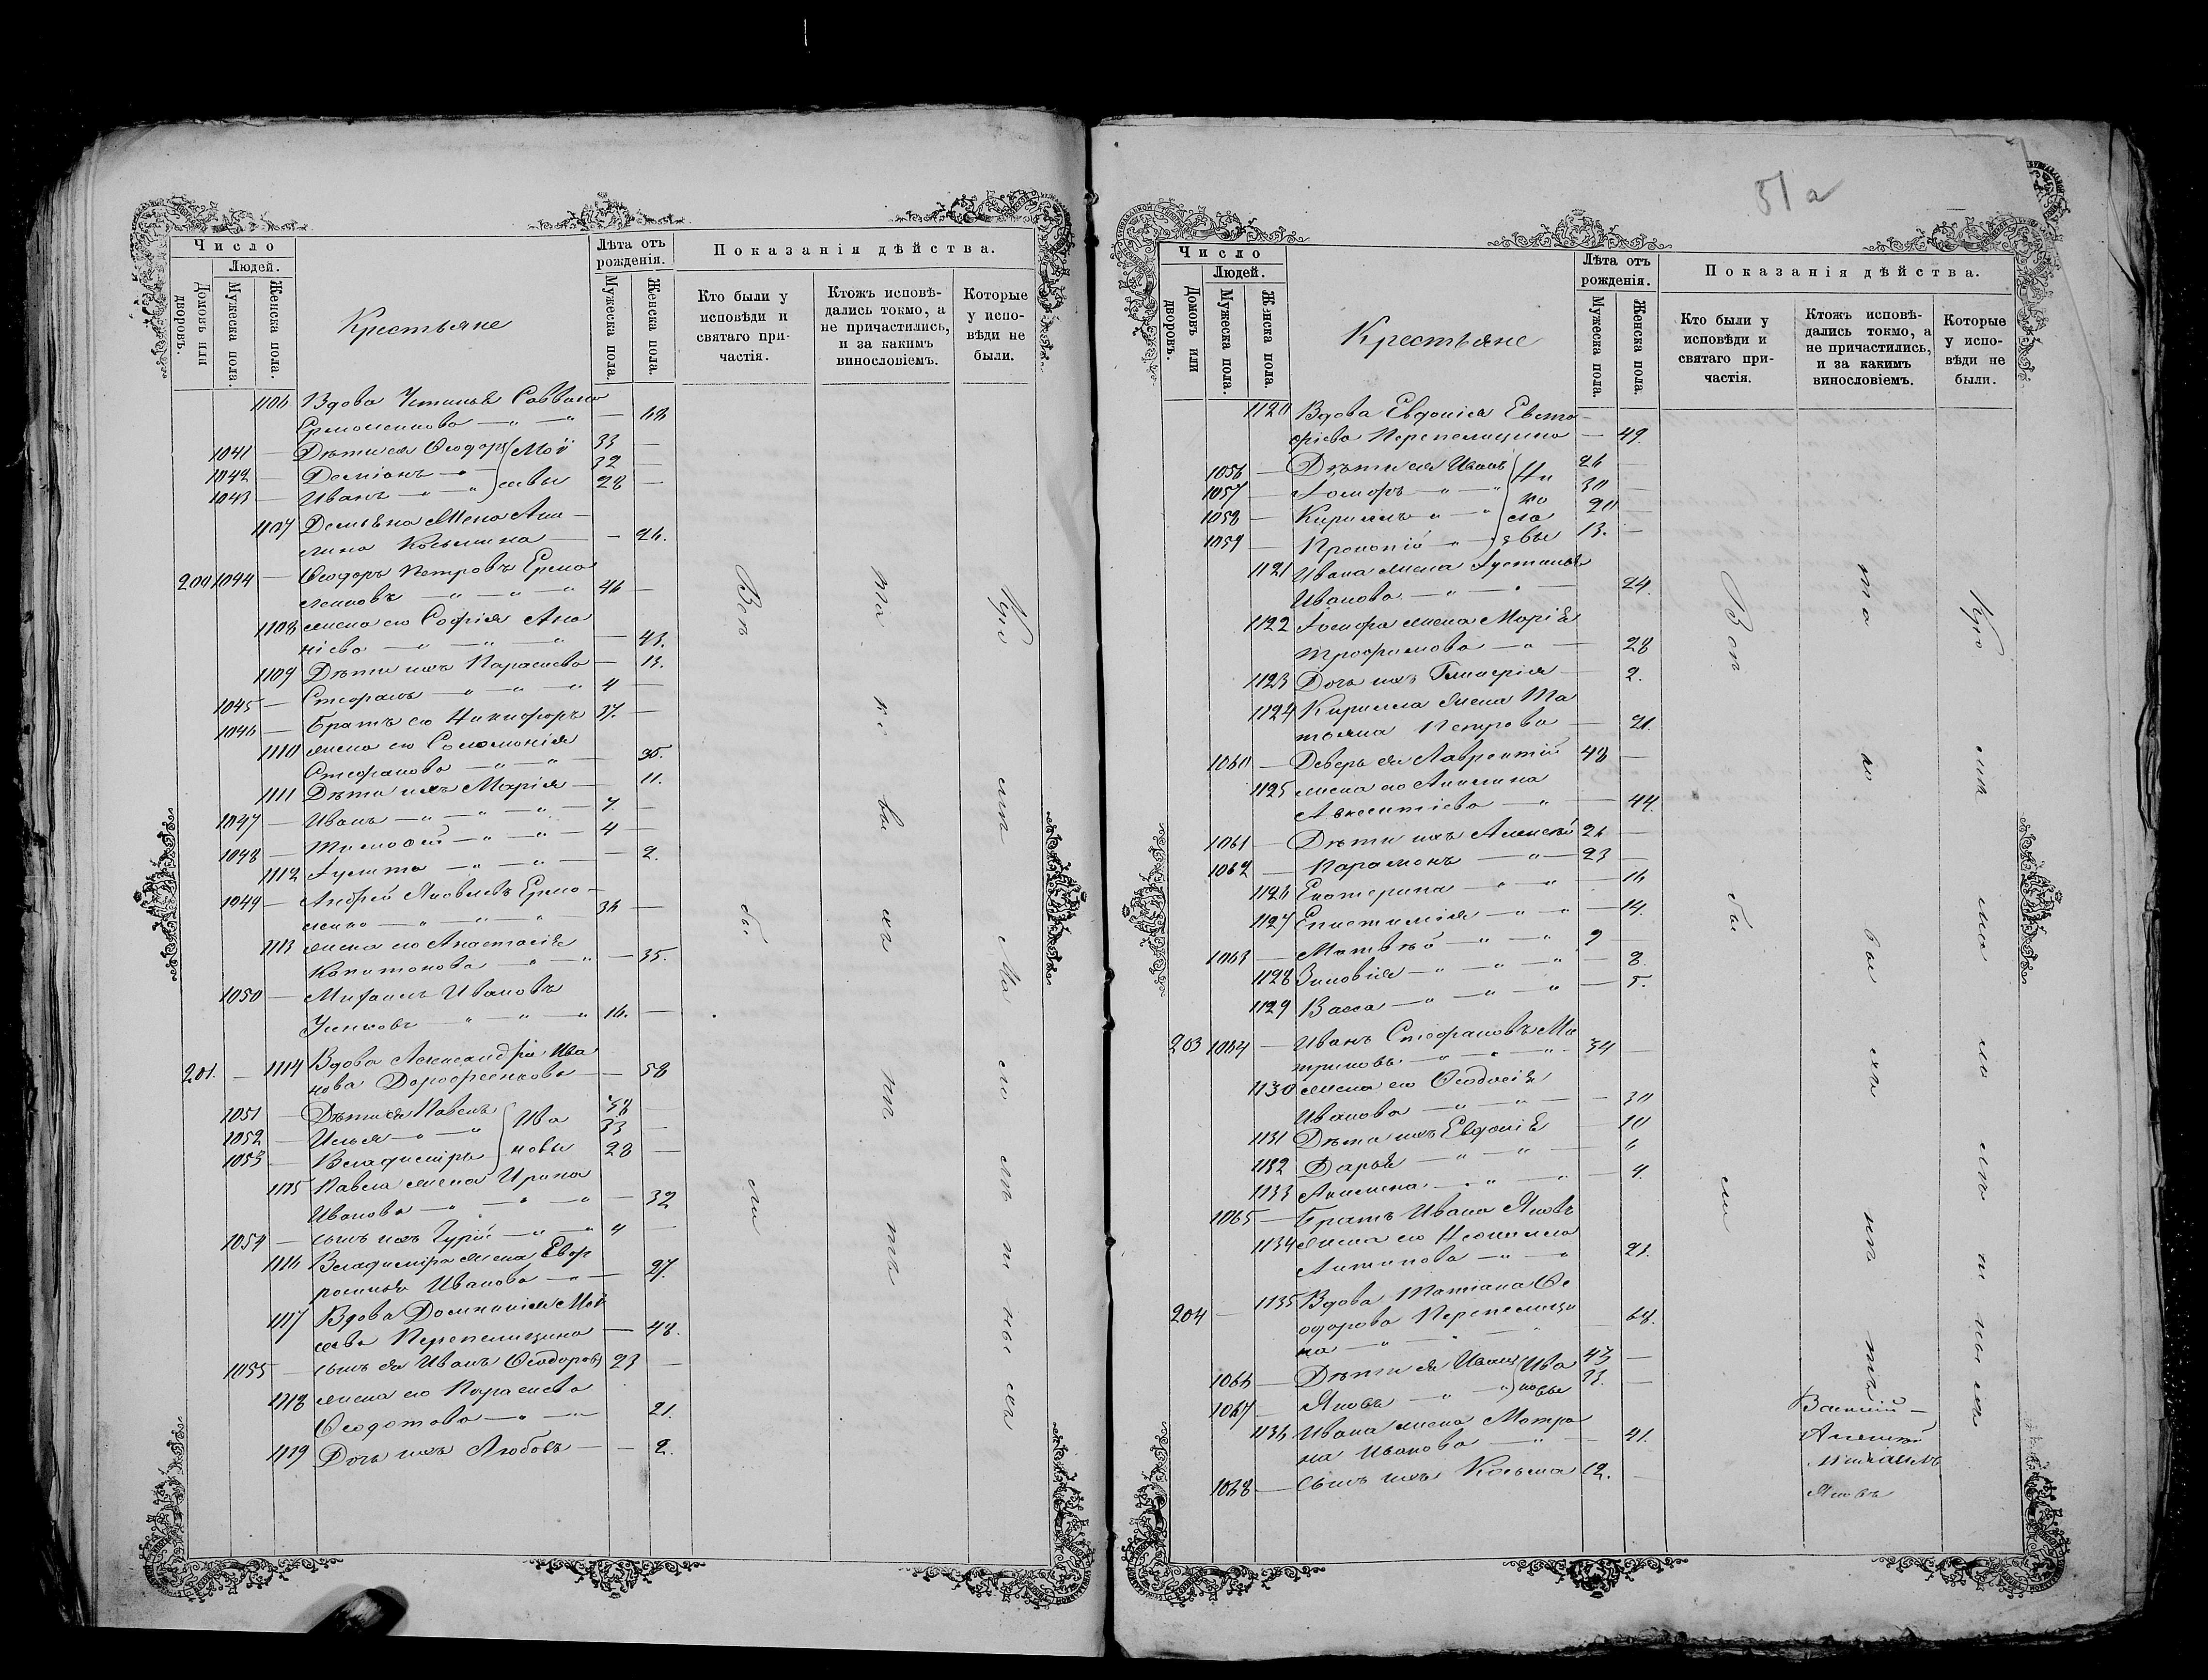 51а
Число
Людей.
Домовъ или дворовъ.
Мужеска пола.
Женска пола.
Крестьяне
Лѣта отъ рожденія.
Мужеска пола.
Женска пола.
Показанія дѣйства.
Кто были у исповѣди и святаго причастія.
Ктожъ исповѣдались токмо, а не причастились, и за какимъ винословіемъ.
Которые у исповѣди не были.
1106 Вдова Устинья Саввина
Ермоленкова — 68
1041 — Дѣти ея Ѳеодоръ Мой 33 —
1042 — Даміанъ 32 —
1043 — Иванъ сеевы 28 —
1107 Демьяна жена Аки-
лина Косьмина — 26.
200 1044 — Ѳеодоръ Петровъ Ермо
ленковъ 46 —
1108 жена его Софія Ана
ніева — 43.
1109 Дѣти ихъ Параскева — 13.
1045 — Стефанъ 4 —
1046 — Братъ его Никифоръ 37. —
1110 жена его Соломонія
Стефанова 35.
1111 Дѣти ихъ Марія — 11.
1047 — Иванъ 7. —
1048 — Тимофей 4 —
1112 Іулита — 2.
1049 — Андрей Яковлевъ Ермо-
ленко 36 —
1113 жена его Анастасія
Капитонова — 35.
1050 — Михаилъ Ивановъ
16. —
201. — 1114 Вдова Александра Ива
нова Дорофеенкова — 58
1051 — Дѣти ея Павелъ Ива 38 —
1052 — Илья 33 —
1053 — Владиміръ новы 28 —
1115 Павла жена Ирина
Иванова — 32
1054 — сынъ ихъ Гурій 4 —
1116 Владиміра жена Евф
росинья Иванова — 27.
1117 Вдова Домникія Мой
сеева Перепелицина — 48.
1055 — сынъ ея Иванъ Ѳеодоровъ 23 —
1118 жена его Параскева
Ѳеодотова 21.
1119 Дочь ихъ Любовь — 2.
Число
Людей.
Домовъ или дворовъ.
Мужеска пола.
Женска пола.
Крестьяне
Лѣта отъ рожденія.
Мужеска пола.
Женска пола.
Показанія дѣйства.
Кто были у исповѣди и святаго причастія.
Ктожъ исповѣдались токмо, а не причастились, и за какимъ винословіемъ.
Которые у исповѣди не были.
1120 Вдова Евдокія Евста
фіева Перепелицина — 49.
1056 — Дѣти ея Иванъ Ни 26 —
1057 — Іосифъ ко 30 —
1058 — Кириллъ ла 20 —
1059 — Прокопій евы 13. —
1121 Ивана жена Іустинья
Иванова 24.
1122 Іосифа жена Марія
Трофимова — 28
1123 Дочь ихъ Гликерія — 2.
1124 Кирилла жена Та
тьяна Петрова — 21.
1060 — Деверь ея Лаврентій 48 —
1125 жена его Акилина
Авксентіева — 44.
1061 — Дѣти ихъ Алексѣй 26 —
1062 — Парамонъ 23 —
1126 Екатерина — 16
1127 Епистимія — 14.
1063 — Матвѣй 9 —
1128 Зиновія — 8.
1129 Васса — 5.
203 1064 — Иванъ Стефановъ
34 —
1130 жена его Ѳеодосія
Иванова — 30
1131 Дѣти ихъ Евдокія — 10
1132 Дарья — 6
1133 Акилина — 4.
1065 — Братъ Ивана Яковъ
1134 жена его Неонилла
Антипова 23.
204 — 1135 Вдова Татіана Ѳе
одорова Перепелици
на — 68.
1066 — Дѣти ея Иванъ Ива 43 —
1067 — Яковъ новы 33. —
1136 Ивана жена Матро
на Иванова — 41.
1068 — Сынъ ихъ Косьма 12. —
Василій —
Алексѣй
Михаилъ
Яковъ